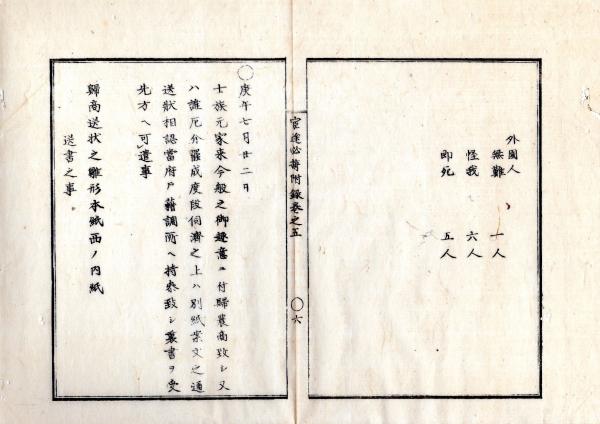 外国人
無難 一人
怪我 六人
即死 五人
官途必携附録巻之五 〇六
〇庚午七月廿二日
士族元家来今般之御趣意ニ付帰農商致シ又
ハ誰厄介罷成度段伺済之上ハ別紙案文之通
送状相認当府戸籍調所ヘ持参致シ裏書ヲ受
先方ヘ可遣事
帰商送状之雛形本紙西ノ内紙
送書之事